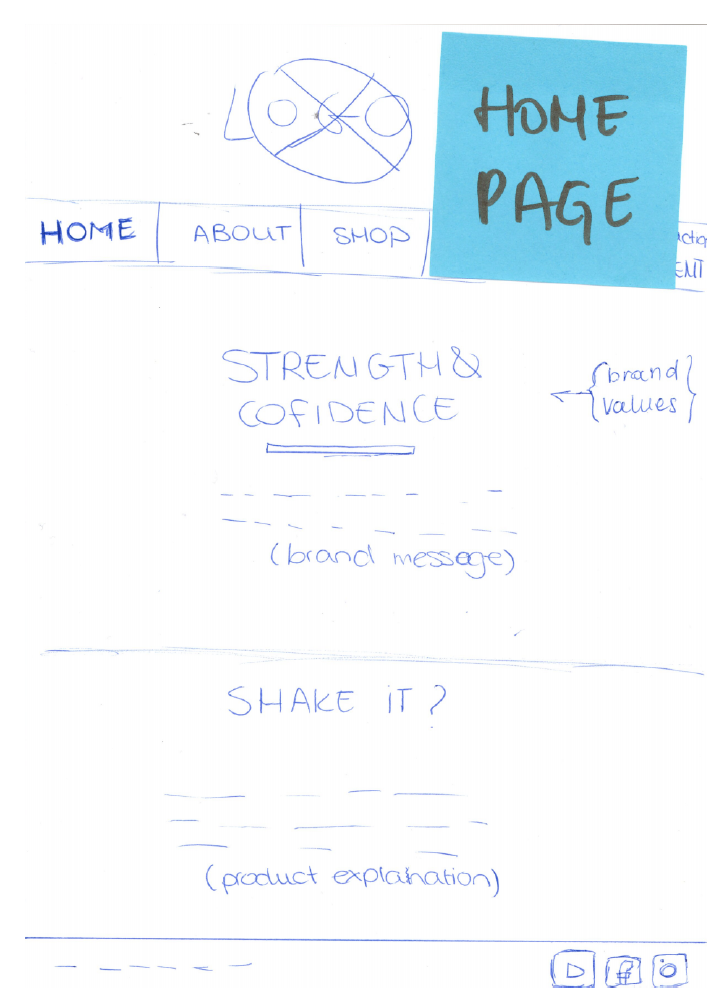 LOGO
HOME
PAGE
HOME ABOUT SHOP
ENT
STRENGTH &
COFIDENCE
{brand
values}
(brand message)
SHAKE IT?
(product explaination)
f